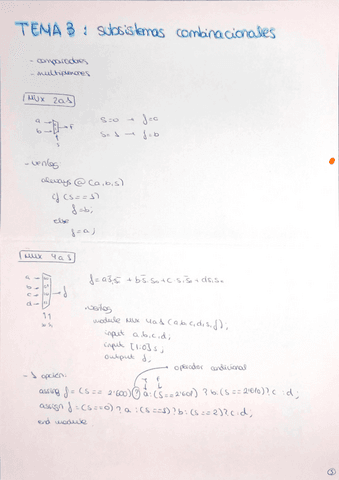 TEMA 3: subsistemas combinacionales
- comparadores
- multiplexores
MUX 2 a 1
a
b
F
s
S=0 → f=a
S=1 → f=b
- verilog
always @ (a,b,s)
if (s==1)
f=b;
else
f=a;
MUX 4 a 1
a
b
c
d
f
f = a
- verilog
module MUX 4a1 (a,b,c,d,s,f);
input a,b,c,d;
input [1:0] s;
output f;
operador condicional
- 1 opción:
assign f = (s == 2'b00) ? a : (s == 2'b01) ? b : (s == 2'b10) ? c : d;
assign f = (s==0) ? a : (s==1) ? b : (s==2) ? c : d;
end module